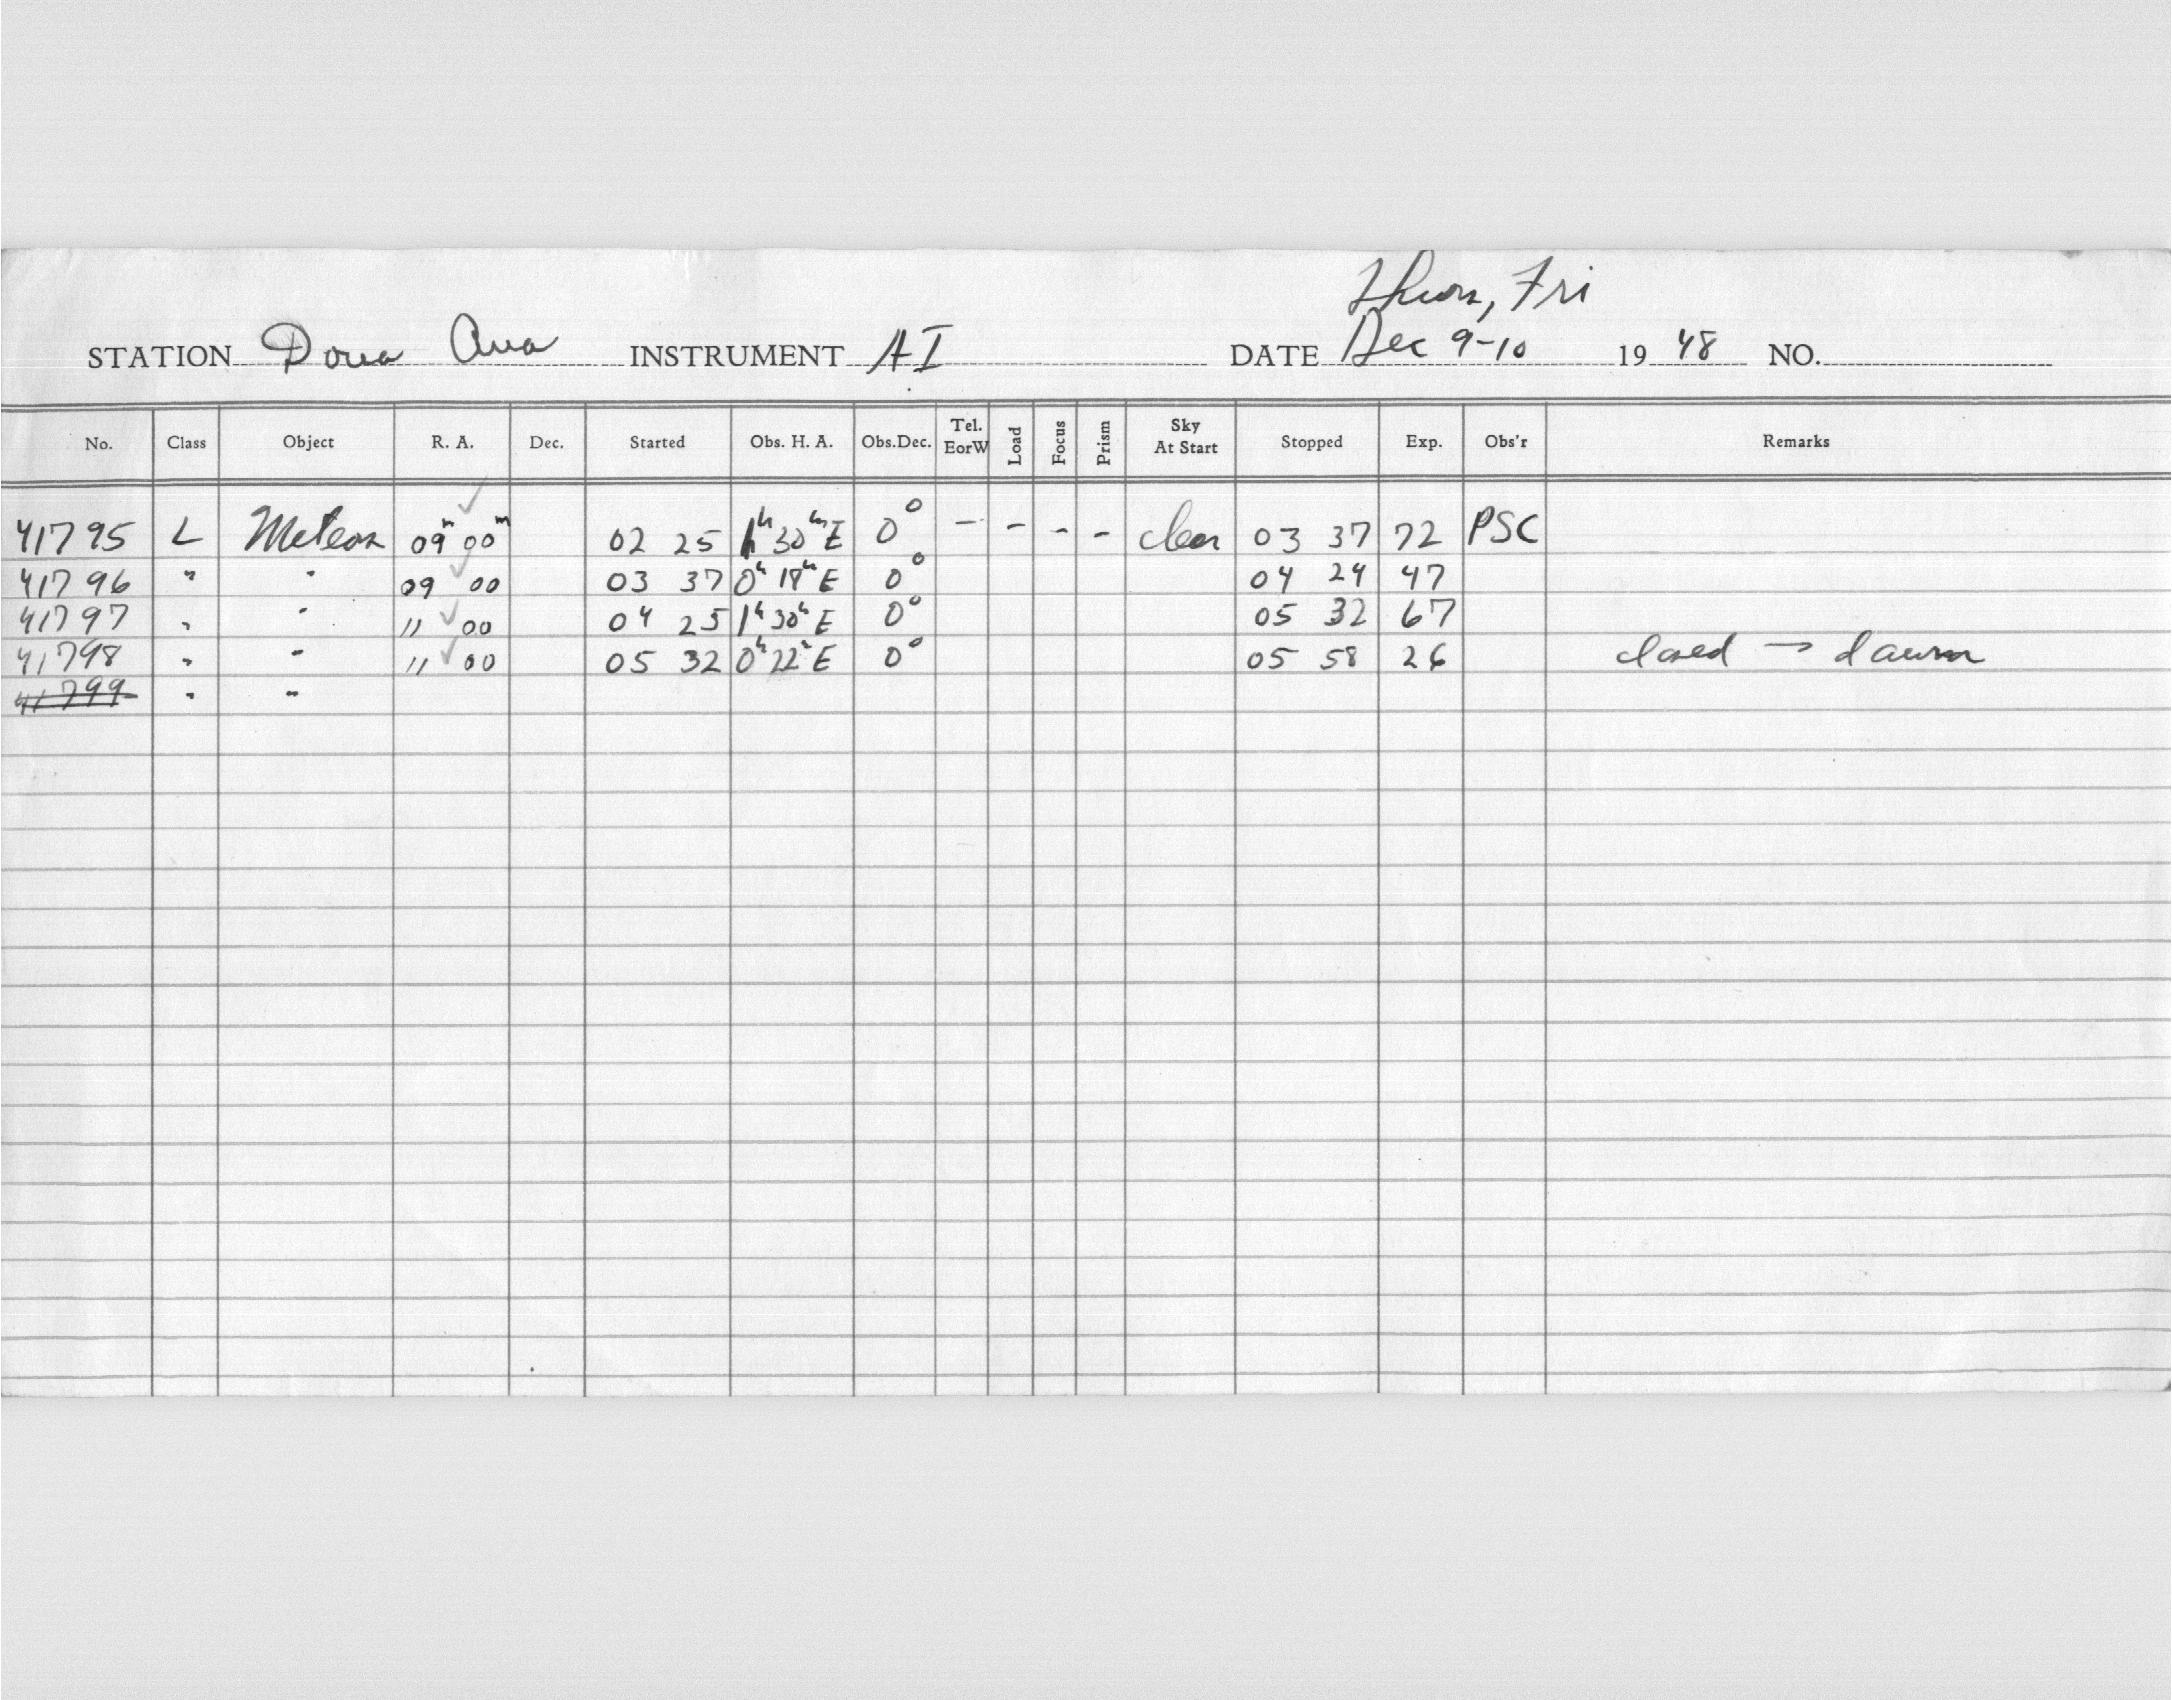 Thurs, Fri
STATION Dona Ana INSTRUMENT AI DATE Dec 9-10 1948 NO.
No. Class Object R. A. Dec. Started Obs. H. A. Obs.Dec. Tel. EorW Load Focus Prism Sky At Start Stopped Exp. Obs'r Remarks
41795 L Meteors 09h 00m 02 25 1h 30m E 0° - - - - clear 03 37 72 PSC
41796 " " 09 00 03 37 0h 18m E 0° 04 24 47
41797 " " 11 00 04 25 1h 30m E 0° 05 32 67
41798 " " 11 00 05 32 0h 22m E 0° 05 58 26 closed → dawn
41799 " "